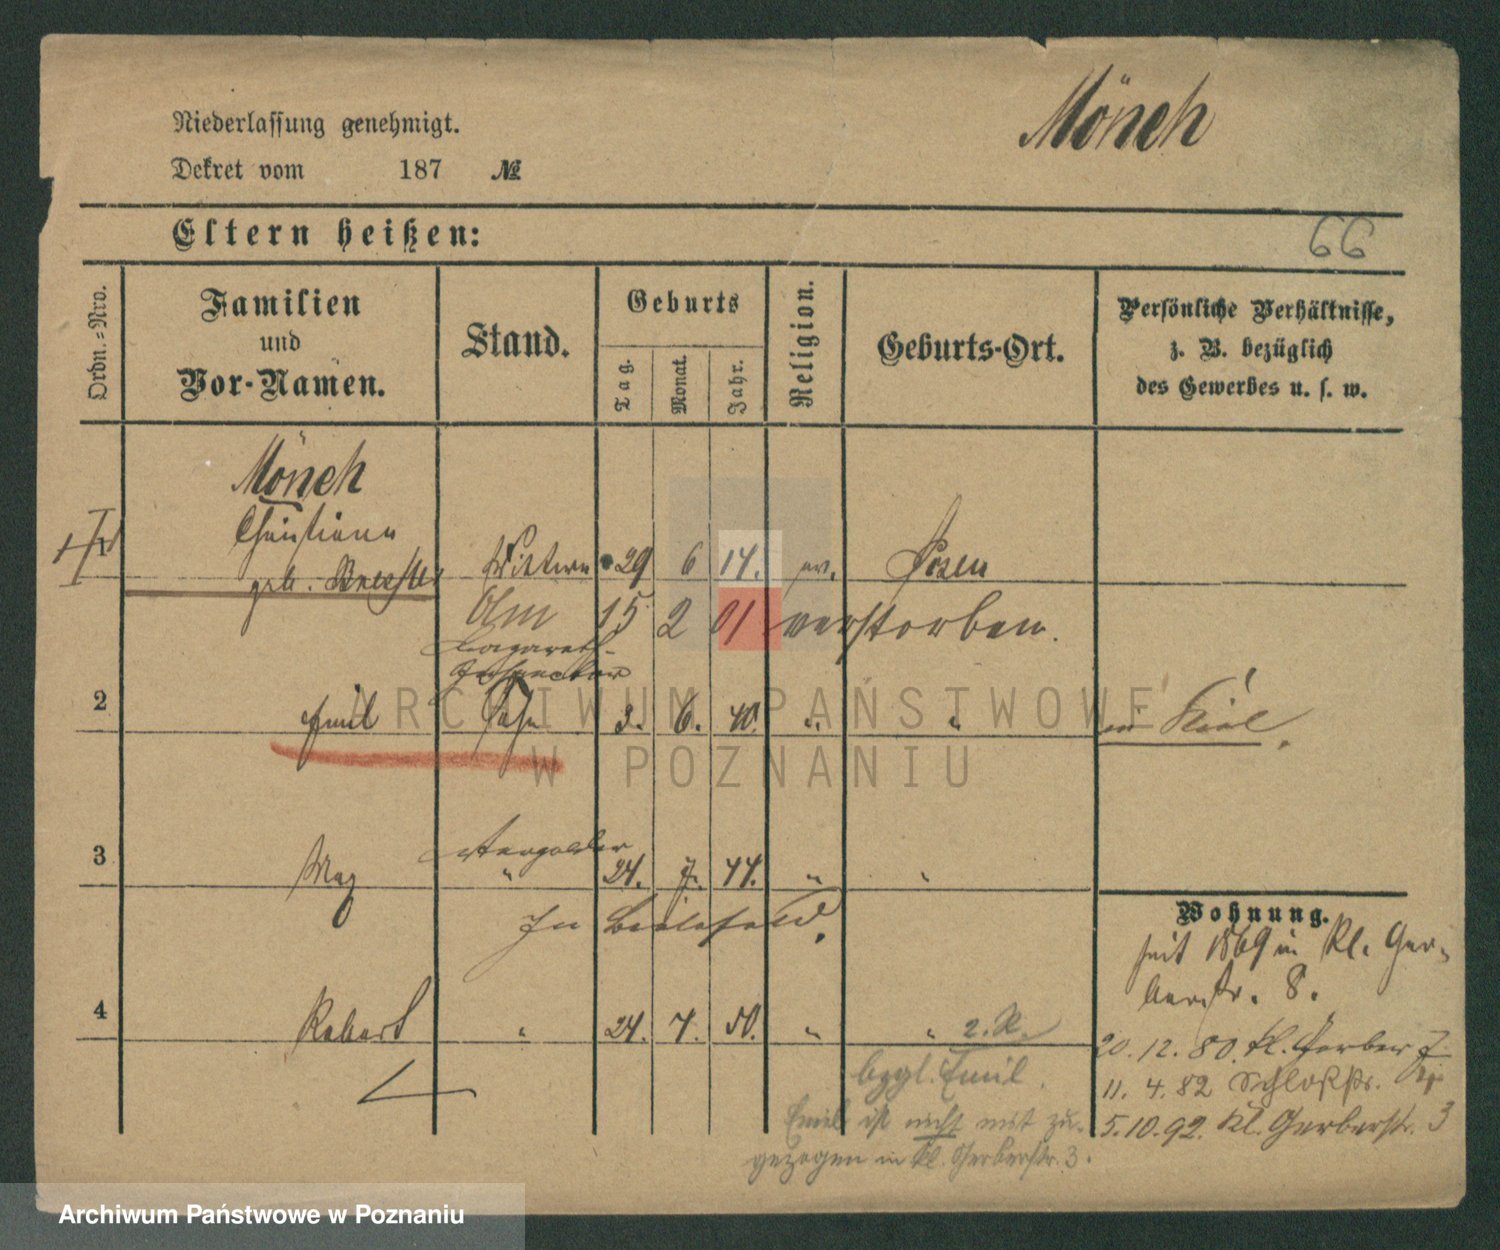 Mönch
Niederlassung genehmigt.
Dekret vom 187 №
Eltern heißen:
66
Ordn.=Nro.
Familien
und
Vor-Namen.
Stand.
Geburts
Tag.
Monat.
Jahr.
Religion.
Geburts-Ort.
Persönliche Verhältnisse,
z. B. bezüglich
des Gewerbes u. s. w.
Mönch
Christiane
1 geb. Wittwe 29 6 14. ev. Posen
Am 15 2 01 verstorben.
Lazareth-
Inspector
2 Emil Sohn 3. 6. 40. " " in Kiel.
Vergolder
3 Max " 24. 7. 44. " "
In Bielefeld.
4 Robert " 24. 7. 50. " " 2. R.
bzgl. Emil.
Emil ist nicht mit zu-
gezogen in kl. Gerberstr. 3.
Wohnung.
seit 1869 in Kl. Ger-
berstr. 8.
20. 12. 80. kl. Gerber 7.
11. 4. 82 Schloßstr.
5. 10. 92. Kl. Gerberstr. 3
ARCHIWUM PAŃSTWOWE
W POZNANIU
Archiwum Państwowe w Poznaniu